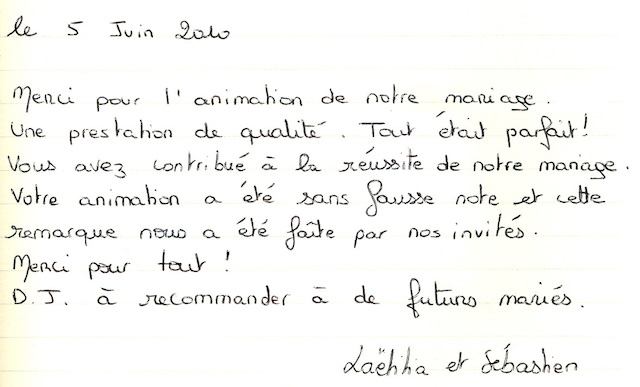 le 5 Juin 2010
Merci pour l'animation de notre mariage.
Une prestation de qualité. Tout était parfait!
Vous avez contribué à la réussite de notre mariage.
Votre animation a été sans fausse note et cette
remarque nous a été faîte par nos invités.
Merci pour tout !
D.J. à recommander à de futurs mariés.
Laëtitia et Sébastien